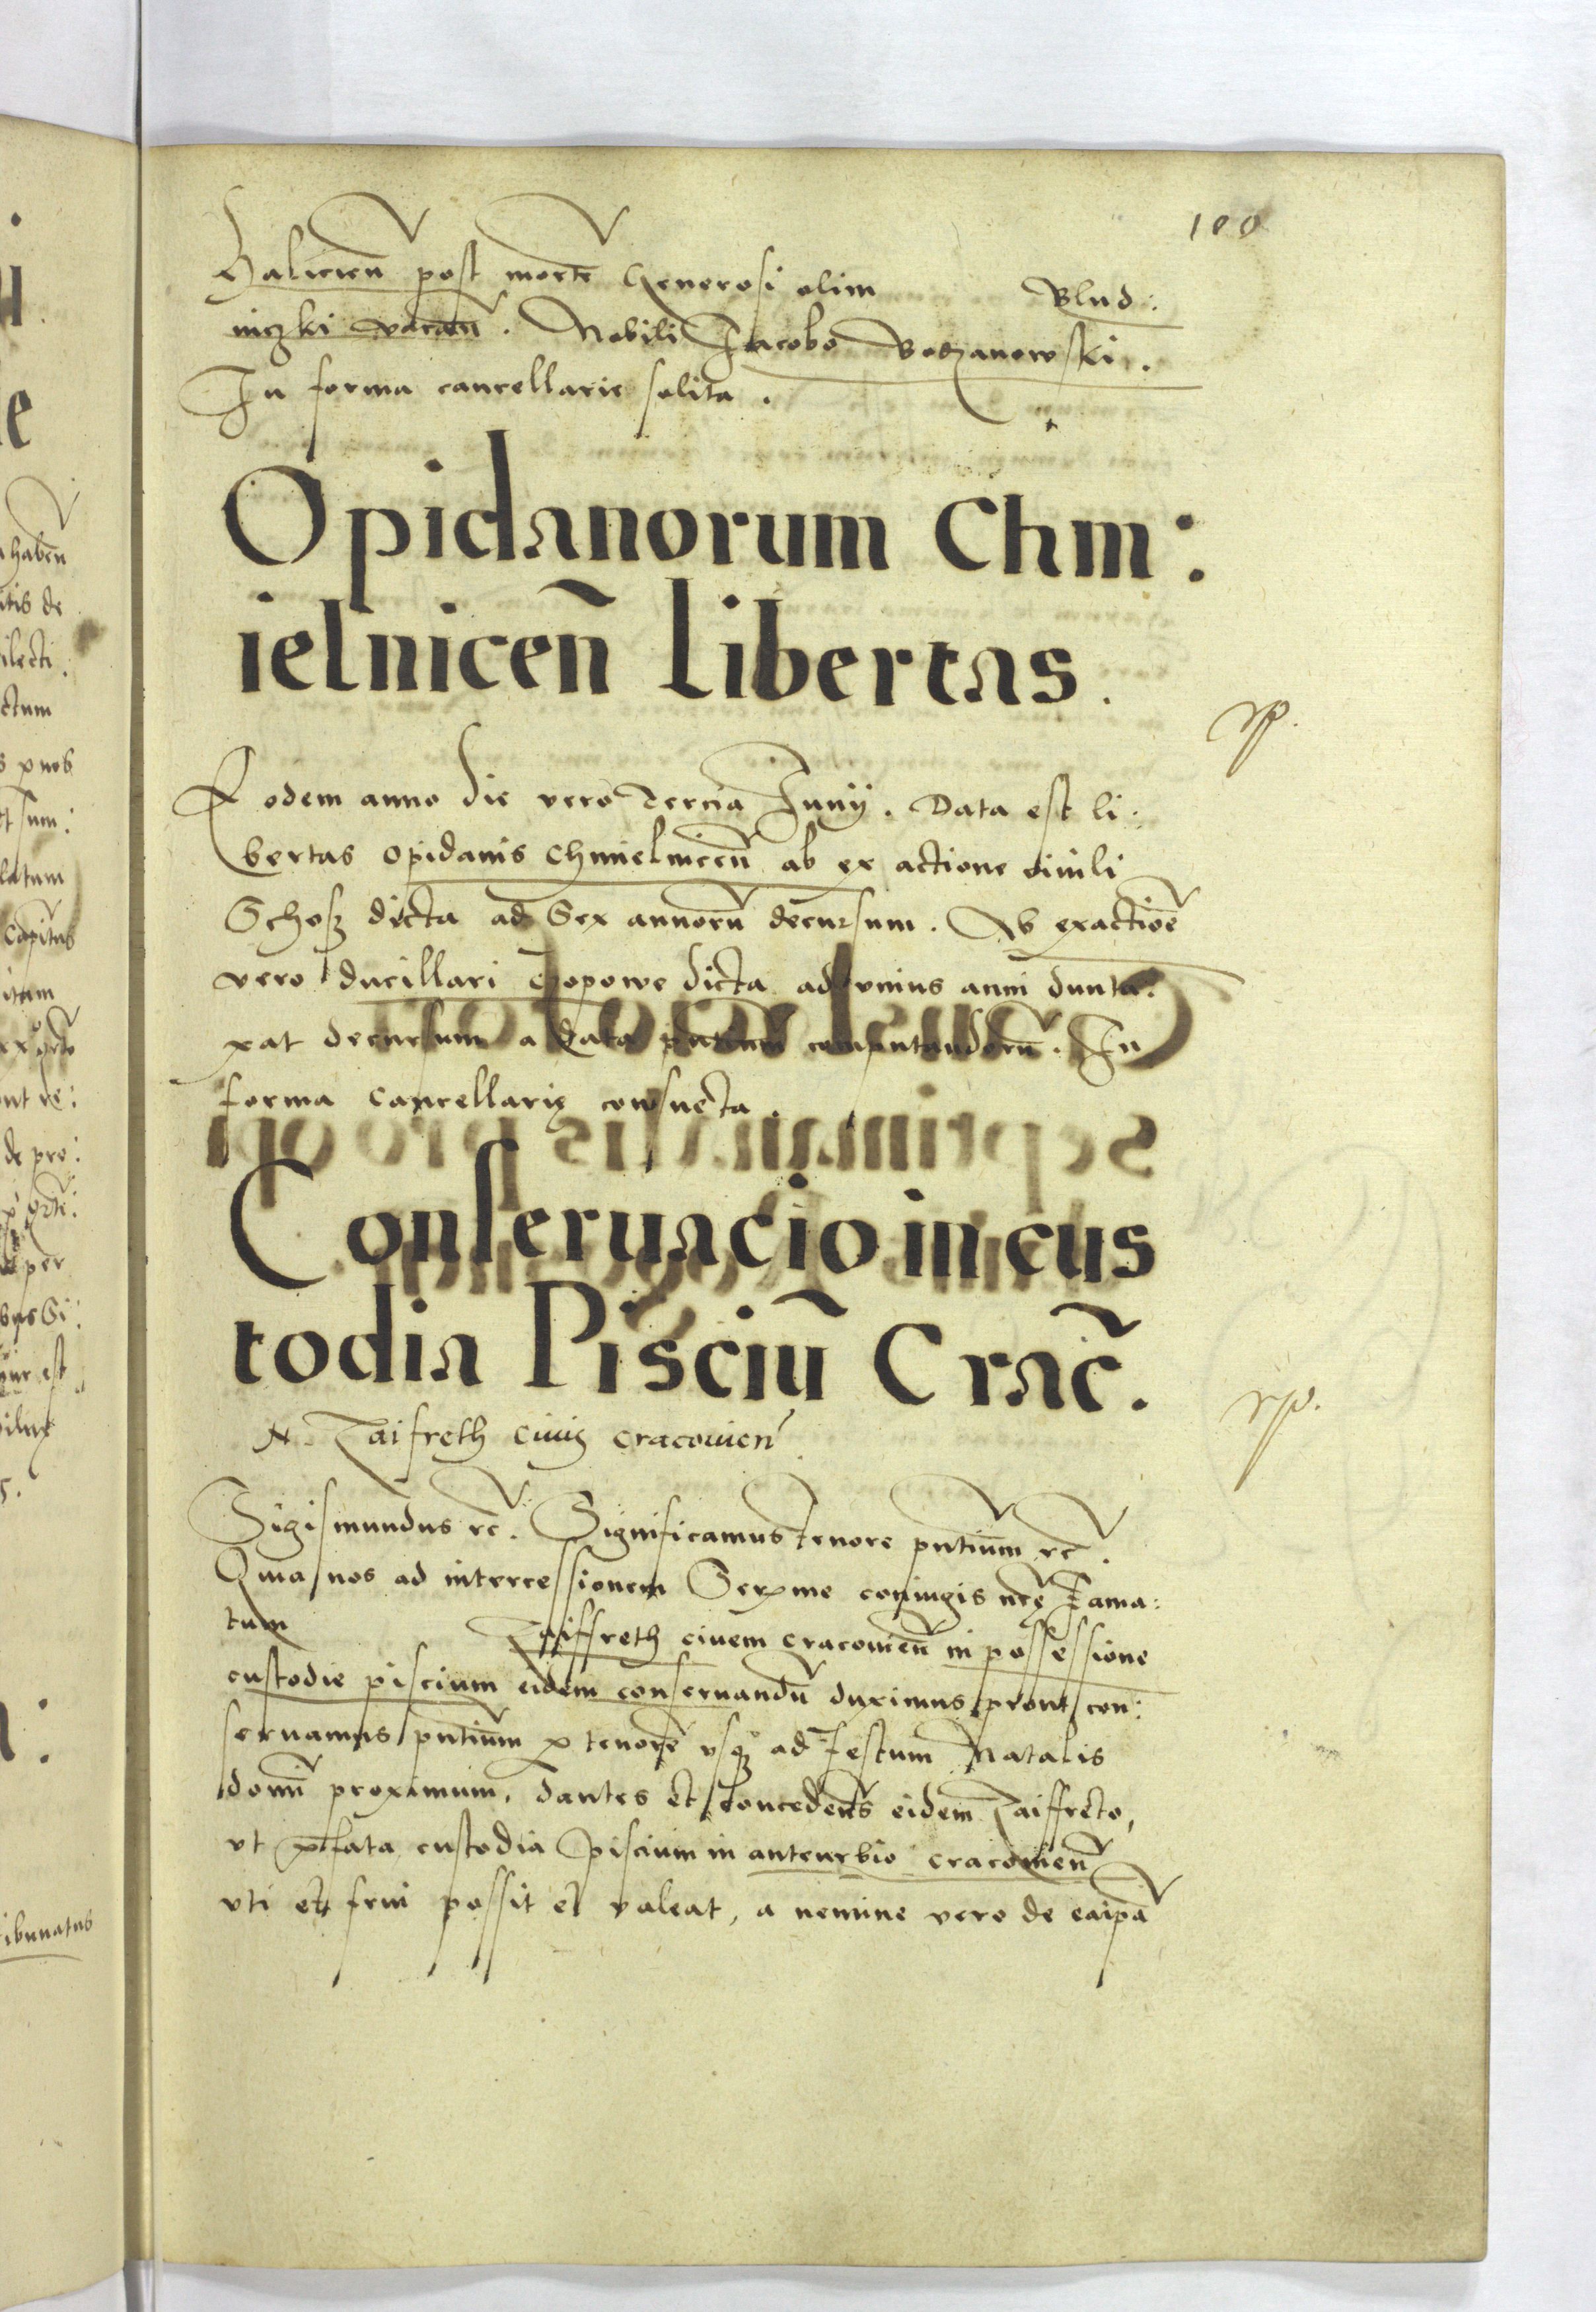 100
Halicien̄ post mortē Generosi olim Blud:
niczki vacan̄. Nobili Jacobo Boczanowski.
In forma cancellarie solita.
Opidanorum Chm:
ielnicen̄ Libertas.
Eodem anno die vero Tercia Junij. Data est li:
bertas opidanis Chmielnicen̄ ab exactione civili
Schosz dicta ad Sex annorū decursum. Ab exactiōe
vero ducillari Czopowe dicta ad vnius anni dunta:
xat decursum a data pn̄tium computandorū. In
forma Cancellarię consueta.
Conseruacio in cus
todia Pisciū Crac̄.
N. Zaifreth ciuis cracouien̄
Sigismundus rc̄. Significamus tenore pn̄tium rc̄.
Quia nos ad intercessionem Serme coniugis nr̄ę Fama:
tum Zaiffreth ciuem cracouien̄ in possessione
custodie piscium eidem conseruandū duximus prout con:
seruamus pn̄tium p tenorē vsq̨ ad Festum Natalis
domī proximum, dantes et concedens̄ eidem Zaiffreto,
vt p̄fata custodia piscium in anteurbio cracouien̄
vti et frui possit et valeat, a nemine vero de ea ip̄a